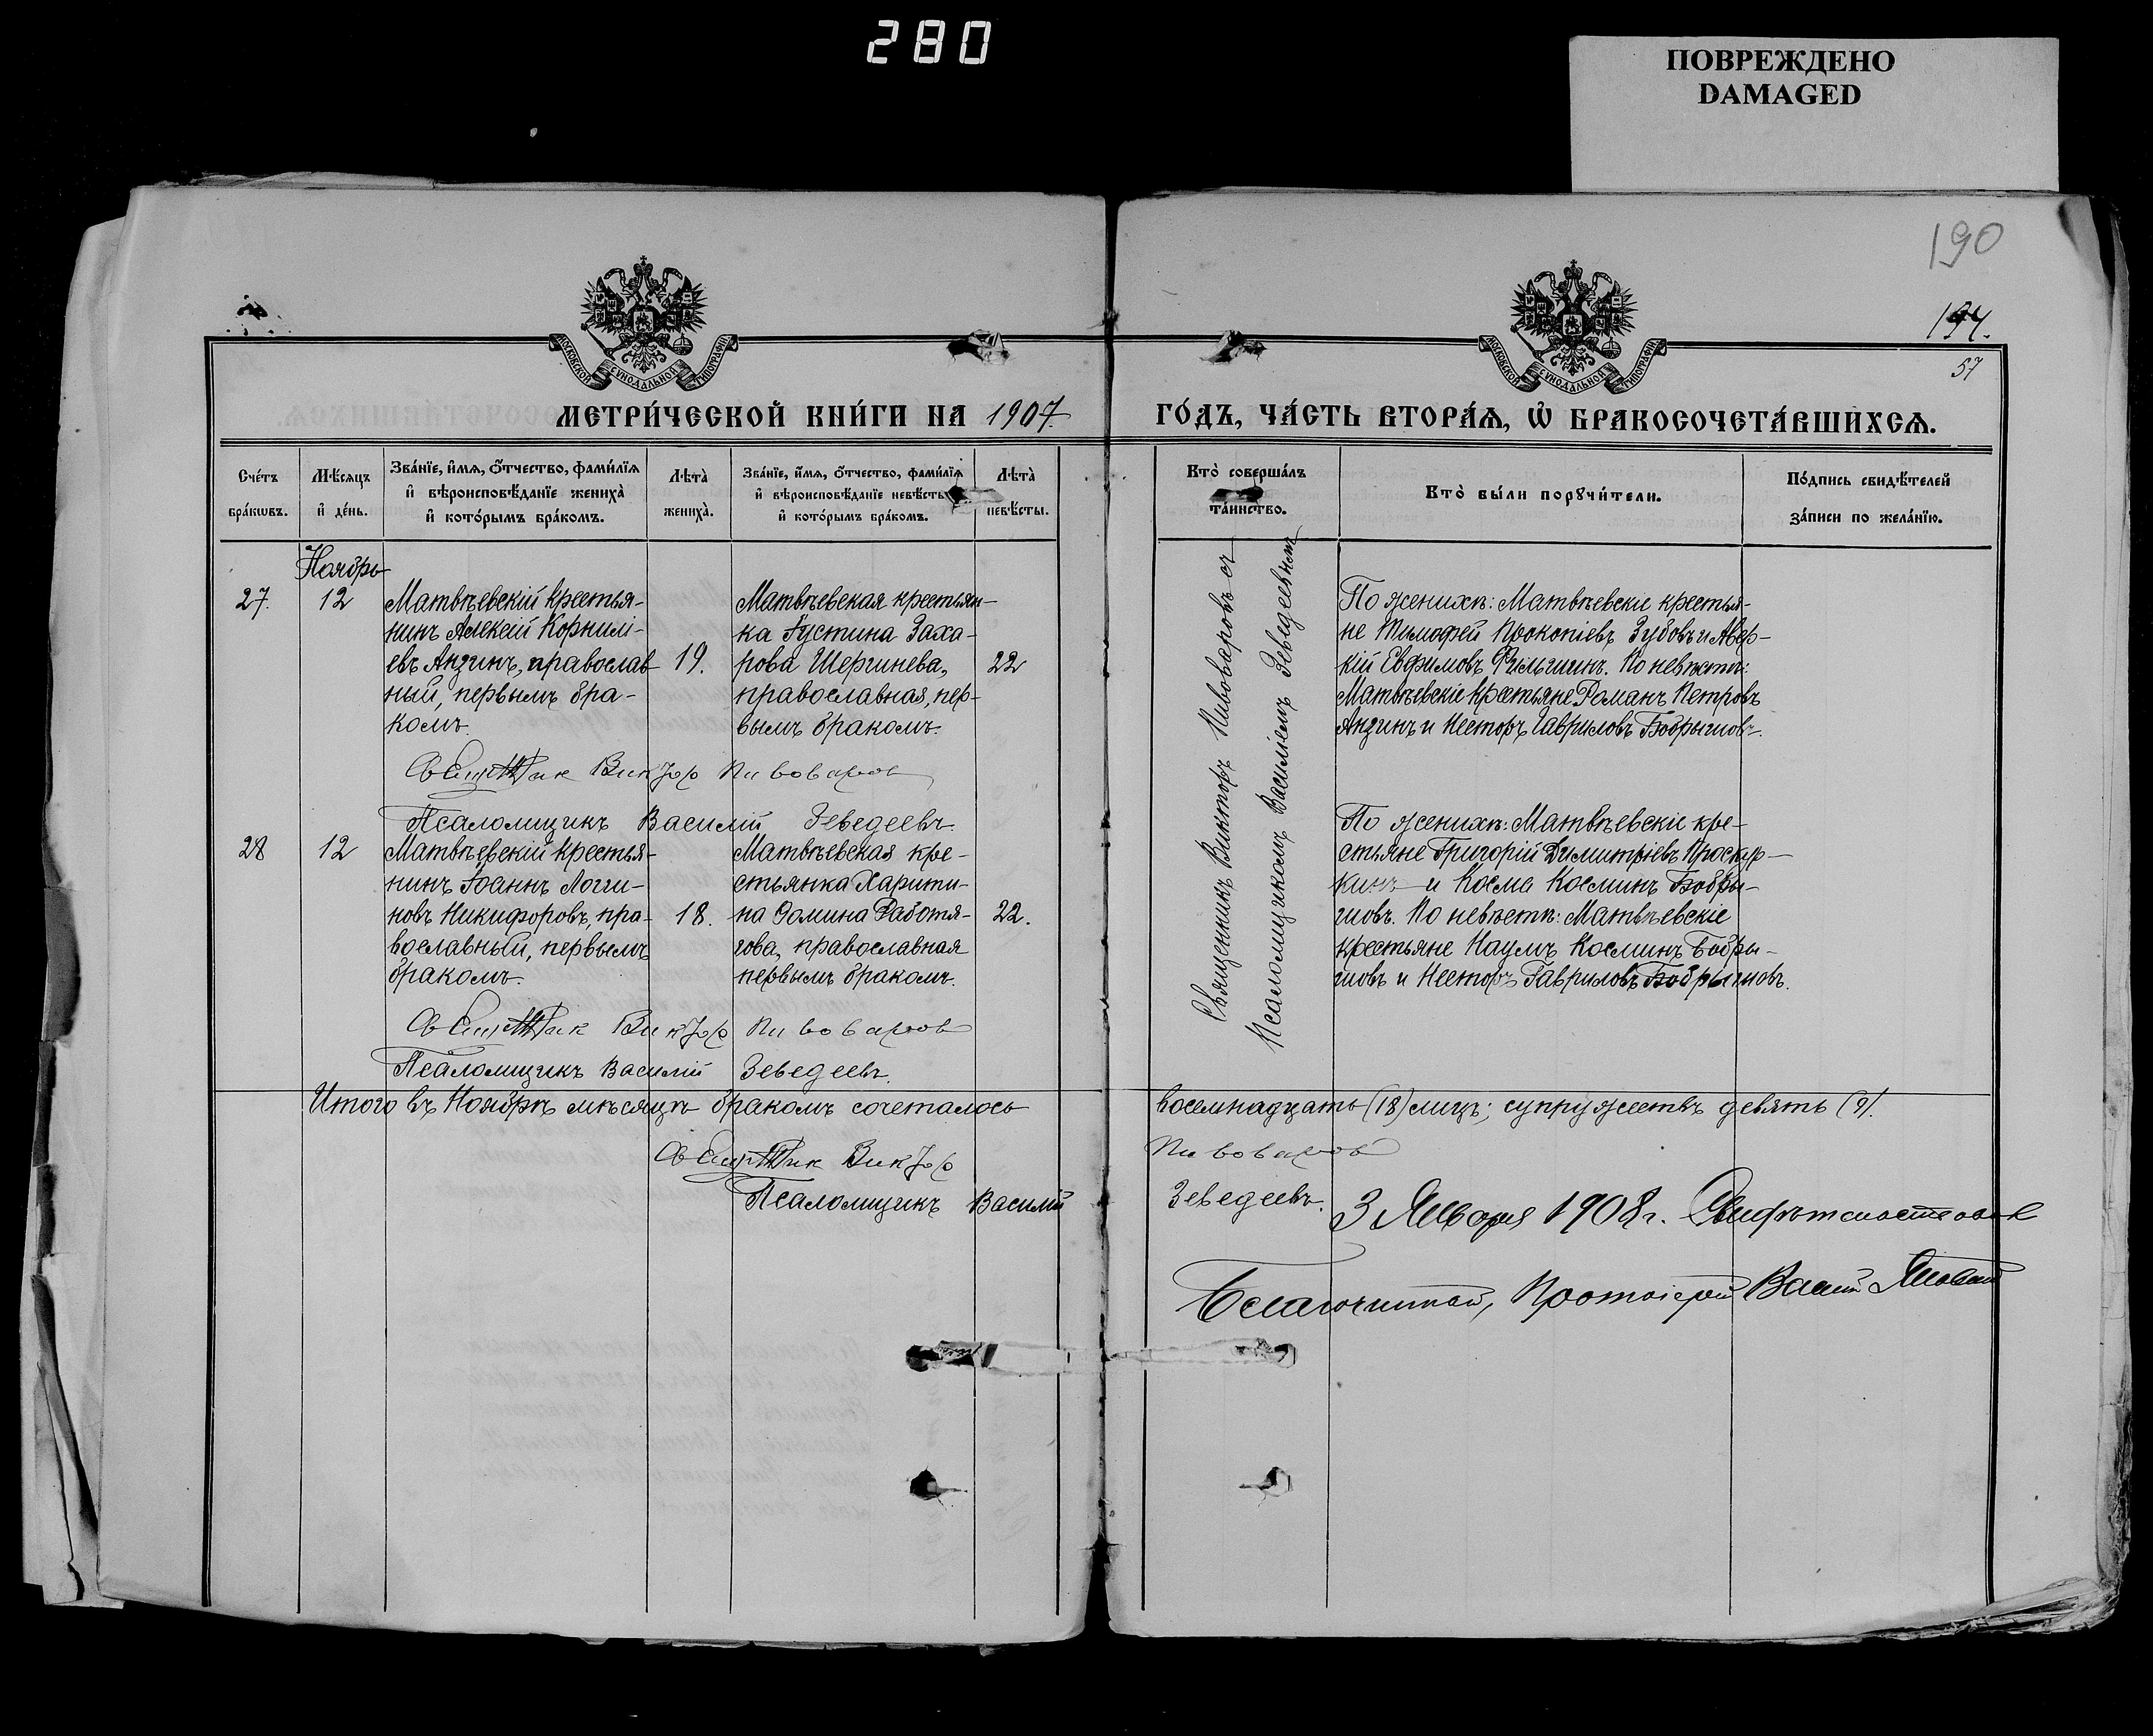 280
ПОВРЕЖДЕНО
DAMAGED
190
194.
57
МОСКОВСКОЙ СУНОДАЛЬНОЙ ТИПОГРАФІИ
МОСКОВСКОЙ СУНОДАЛЬНОЙ ТИПОГРАФІИ
МЕТРИ́ЧЕСКОЙ КНИ́ГИ НА 1907
ГО́ДЪ, ЧА́СТЬ ВТОРА́Ѧ, Ѡ҆ БРАКОСОЧЕТА́ВШИХСѦ.
Сче́тъ
бра́кωвъ.
Мѣ́сяцъ
и҆ де́нь.
Зва́нїе, и҆́мѧ, о҆́тчество, фами́лїѧ
и҆ вѣроисповѣ́данїе жениха̀
и҆ кото́рымъ бра́комъ.
Лѣта̀
жениха̀.
Зва́нїе, и҆́мѧ, о҆́тчество, фами́лїѧ
и҆ вѣроисповѣ́данїе невѣ́сты
и҆ кото́рымъ бра́комъ.
Лѣта̀
невѣ́сты.
Кто̀ соверша́лъ
та́инство.
Кто̀ бы́ли порꙋчи́тели.
По́дпись свидѣ́телей
за́писи по жела́нїю.
Ноябрь
27.
12
Матвѣевскій крестья-
нинъ Алексій Корнилі-
евъ Андинъ, православ-
ный, первымъ бра-
комъ.
19.
Матвѣевская крестьян-
ка Іустина Заха-
рова Шергинева,
православная, пер-
вымъ бракомъ.
22
Священникъ Викторъ Пивоваровъ съ
Псаломщикомъ Василіемъ Зеведеевымъ
По женихѣ: Матвѣевскіе крестья-
не Тимофей Прокопіевъ Зубовъ и Авер-
кій Евфимовъ Фильшинъ. По невѣстѣ:
Матвѣевскіе крестьяне Романъ Петровъ
Андинъ и Несторъ Гавриловъ Бобрышовъ.
Священник Виктор Пивоваров
Псаломщикъ Василій Зеведеевъ.
28
12
Матвѣевскій крестья-
нинъ Іоаннъ Логги-
новъ Никифоровъ, пра-
вославный, первымъ
бракомъ.
18.
Матвѣевская кре-
стьянка Харити-
на Фомина Работя-
гова, православная
первымъ бракомъ.
22.
По женихѣ: Матвѣевскіе кре-
стьяне Григорій Димитріевъ Проскур-
кинъ и Косма Косминъ Бобры-
шовъ. По невѣстѣ: Матвѣевскіе
крестьяне Наумъ Косминъ Бобры-
шовъ и Несторъ Гавриловъ Бобрышовъ.
Священник Виктор Пивоваров
Псаломщикъ Василій Зеведеевъ.
Итого въ Ноябрѣ мѣсяцѣ бракомъ сочеталось восемнадцать (18) лицъ; супружествъ девять (9).
Священник Виктор Пивоваров
Псаломщикъ Василій Зеведеевъ.
3 Января 1908 г. Свидѣтельствовалъ
Благочинный, Протоіерей